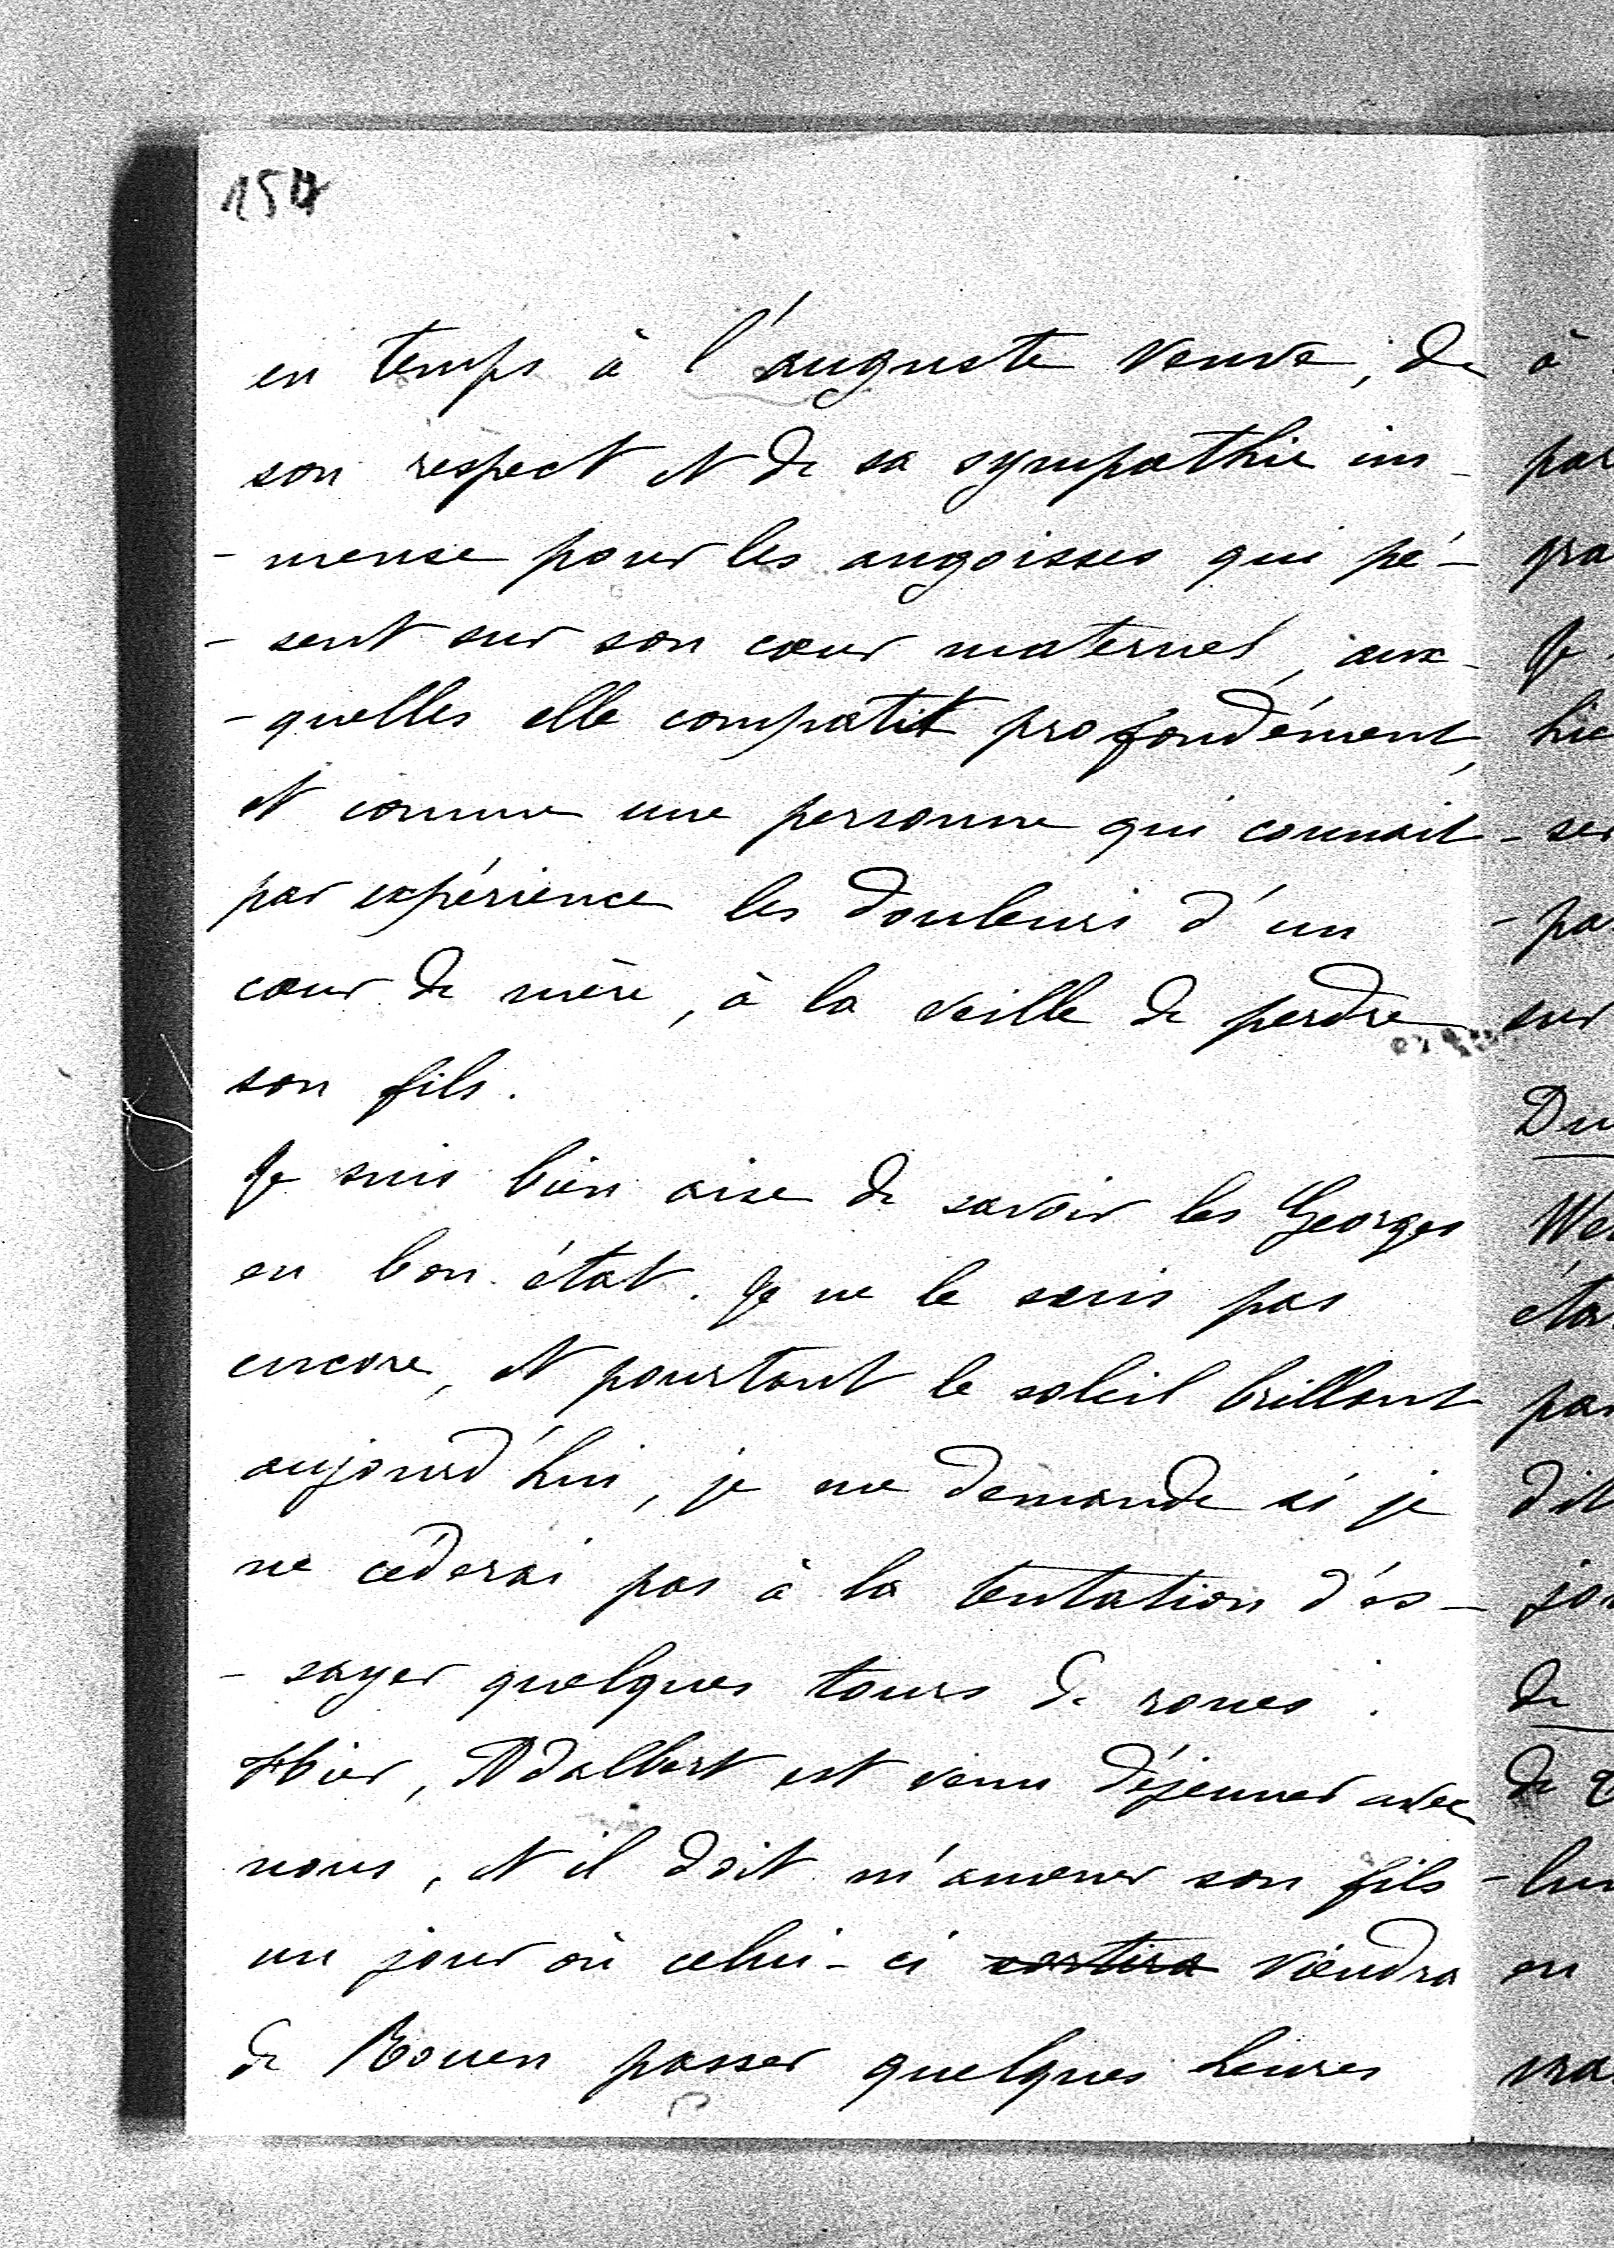 en temps à l'auguste veuve, de
son respect et de sa sympathie im-
-mense pour les angoisses qui pé-
-sent sur son cœur maternel, aux-
-quelles elle compatit profondément,
et comme une personne qui connait
par expérience les douleurs d'un
cœur de mère, à la veille de perdre
son fils.
Je suis bien aise de savoir les Georges
en bon état. Je ne le suis pas
encore, et pourtant le soleil brillant
aujourd'hui, je me demande si je
ne céderai pas à la tentation d'es-
-sayer quelques tours de roues.
Hier, Adalbert est venu déjeuner avec
nous, et il doit m'amener son fils
un jour où celui-ci sortira viendra
de Rouen passer quelques heures